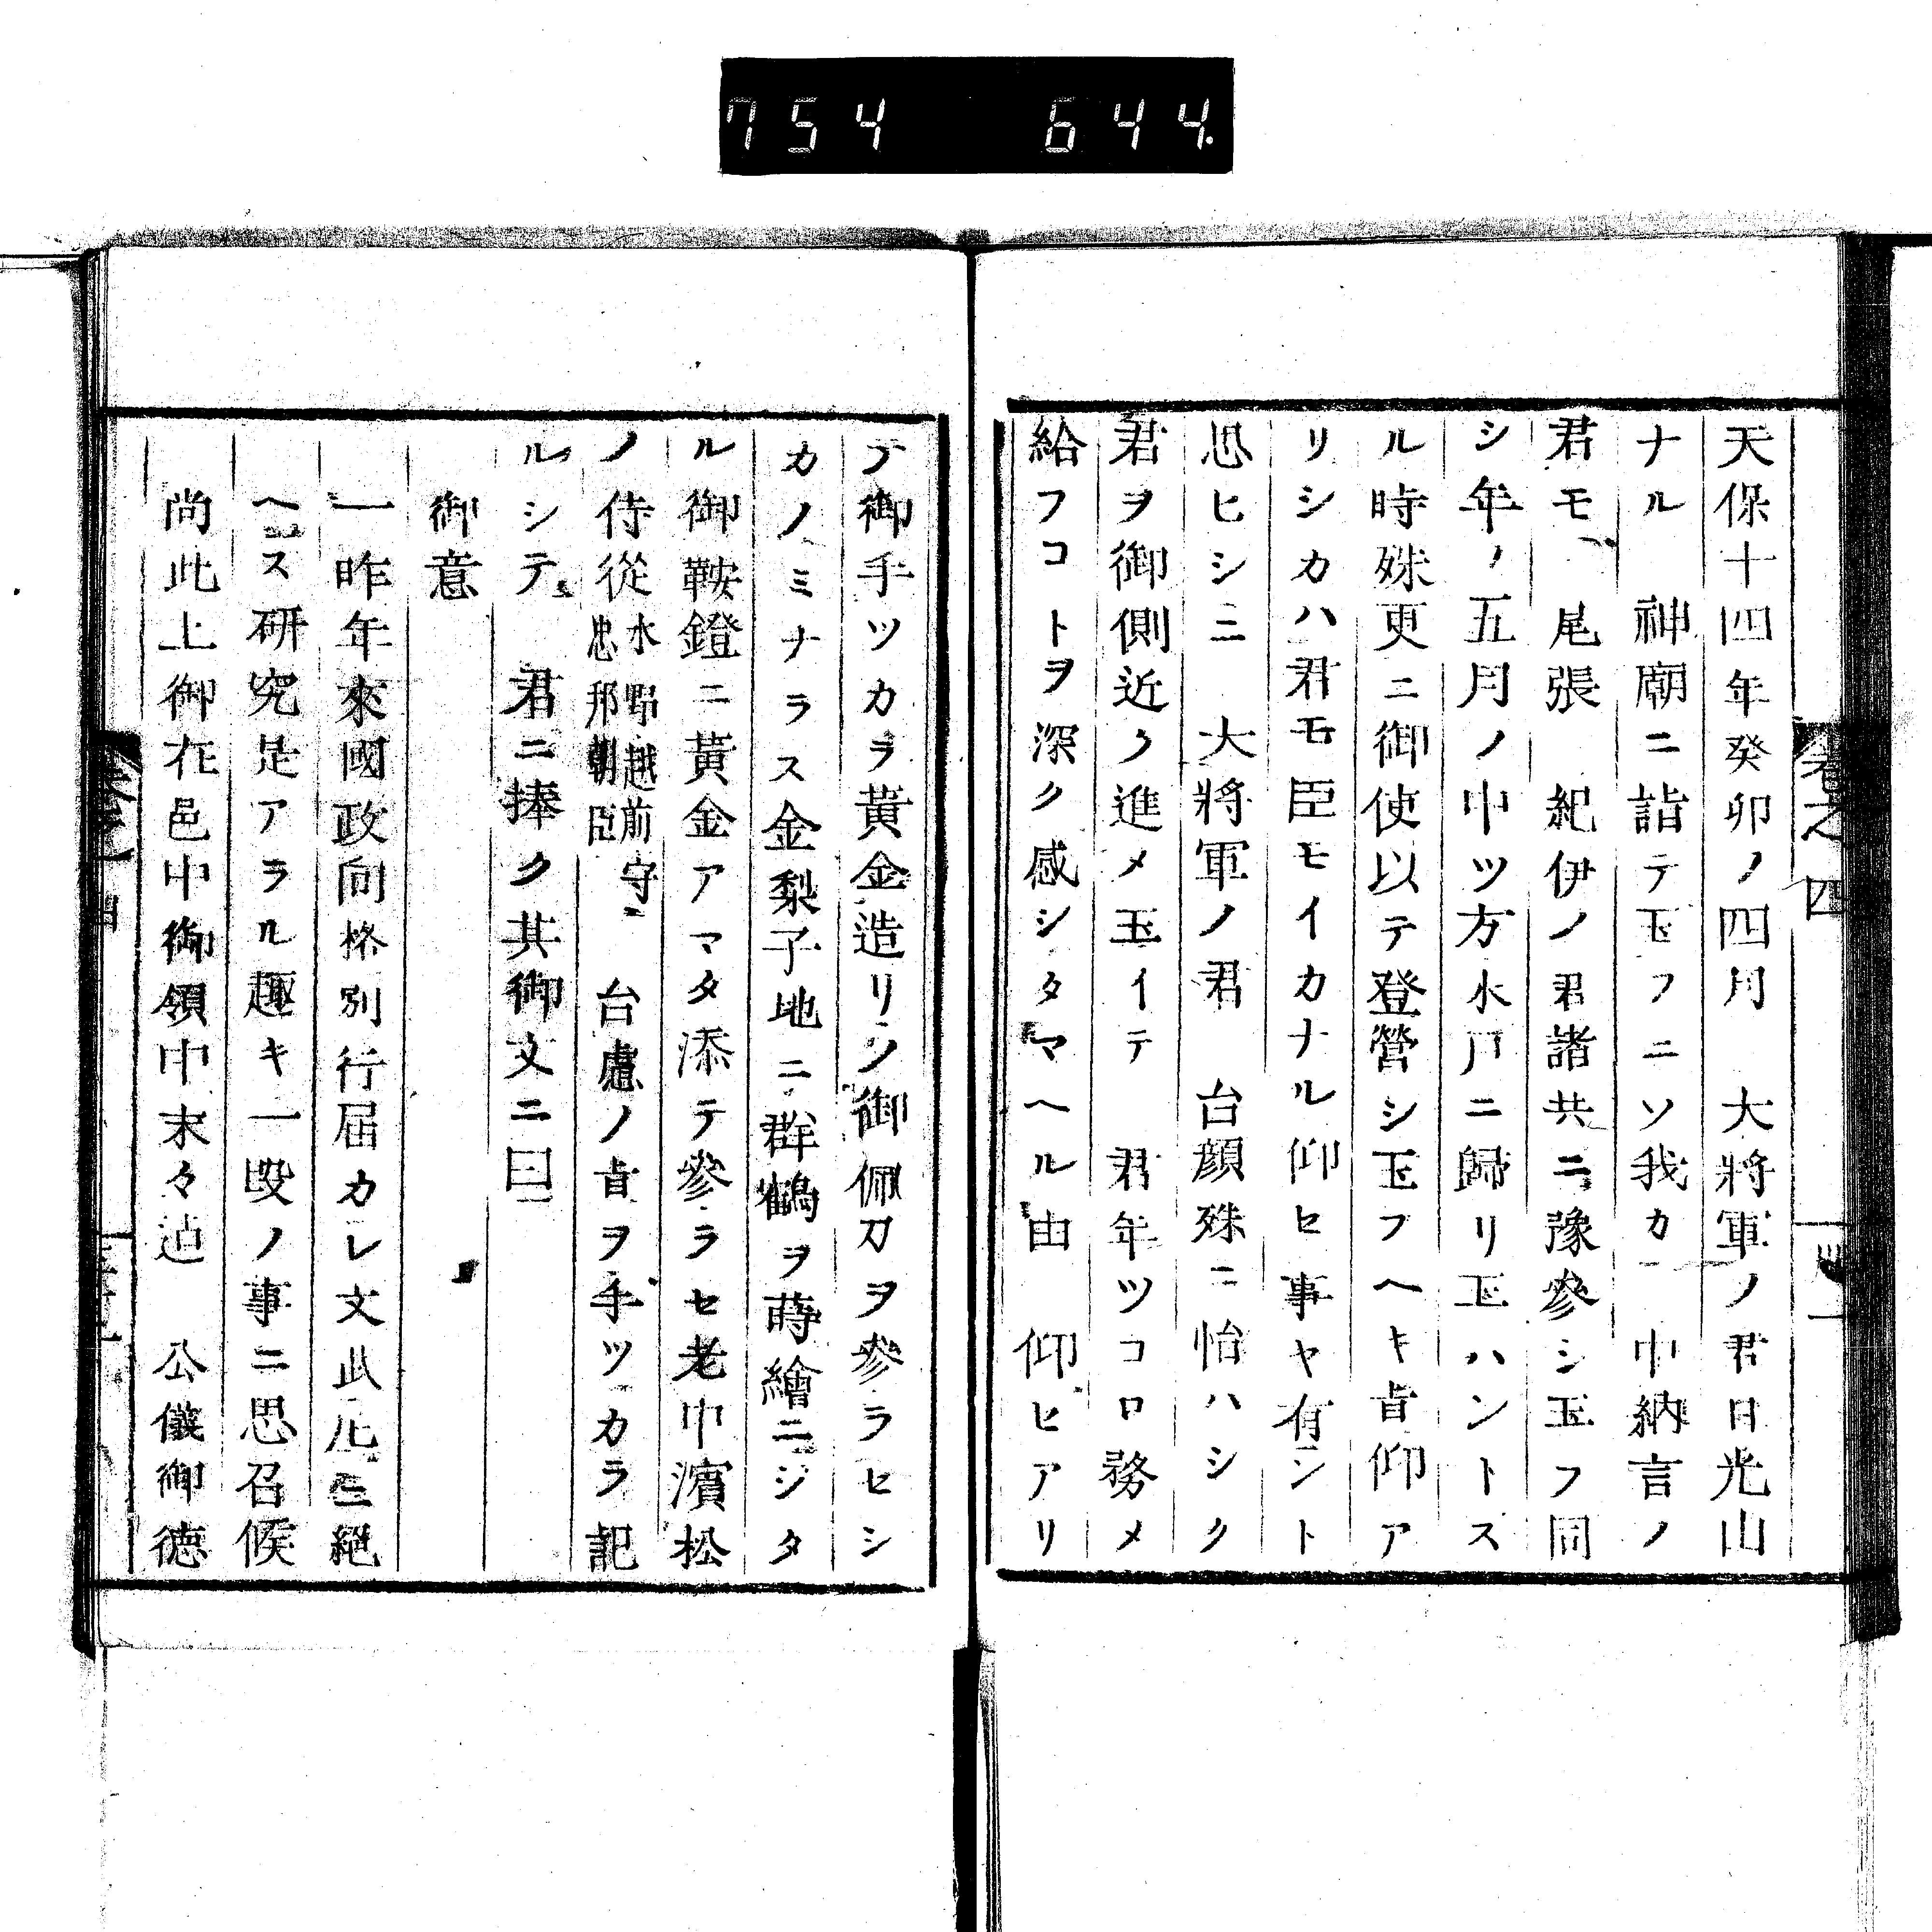 754 644.
卷之四
天保十四年癸卯ノ四月　大將軍ノ君日光山
ナル　神廟ニ詣テ玉フニソ我カ　中納言ノ
君モ　尾張　紀伊ノ君諸共ニ豫參シ玉フ同
シ年ノ五月ノ中ツ方水戸ニ歸リ玉ハントス
ル時殊更ニ御使以テ登營シ玉フヘキ旨仰ア
リシカハ君モ臣モイカナル仰セ事ヤ有ント
思ヒシニ　大將軍ノ君　台顔殊ニ怡ハシク
君ヲ御側近ク進メ玉イテ　君年ツコロ務メ
給フコトヲ深ク感シタマヘル由　仰ヒアリ
テ御手ツカラ黃金造リノ御佩刀ヲ參ラセシ
カノミナラス金梨子地ニ群鶴ヲ蒔繪ニシタ
ル御鞍鐙ニ黃金アマタ添テ參ラセ老中濱松
ノ侍從水野越前守忠邦朝臣　台慮ノ旨ヲ手ツカラ記
ルシテ　君ニ捧ク其御文ニ曰
御意
一昨年來國政向格別行屆カレ文武
ヘス研究是アラル趣キ一段ノ事ニ思召候
尚此上御在邑中御領中末々迠　公儀御德